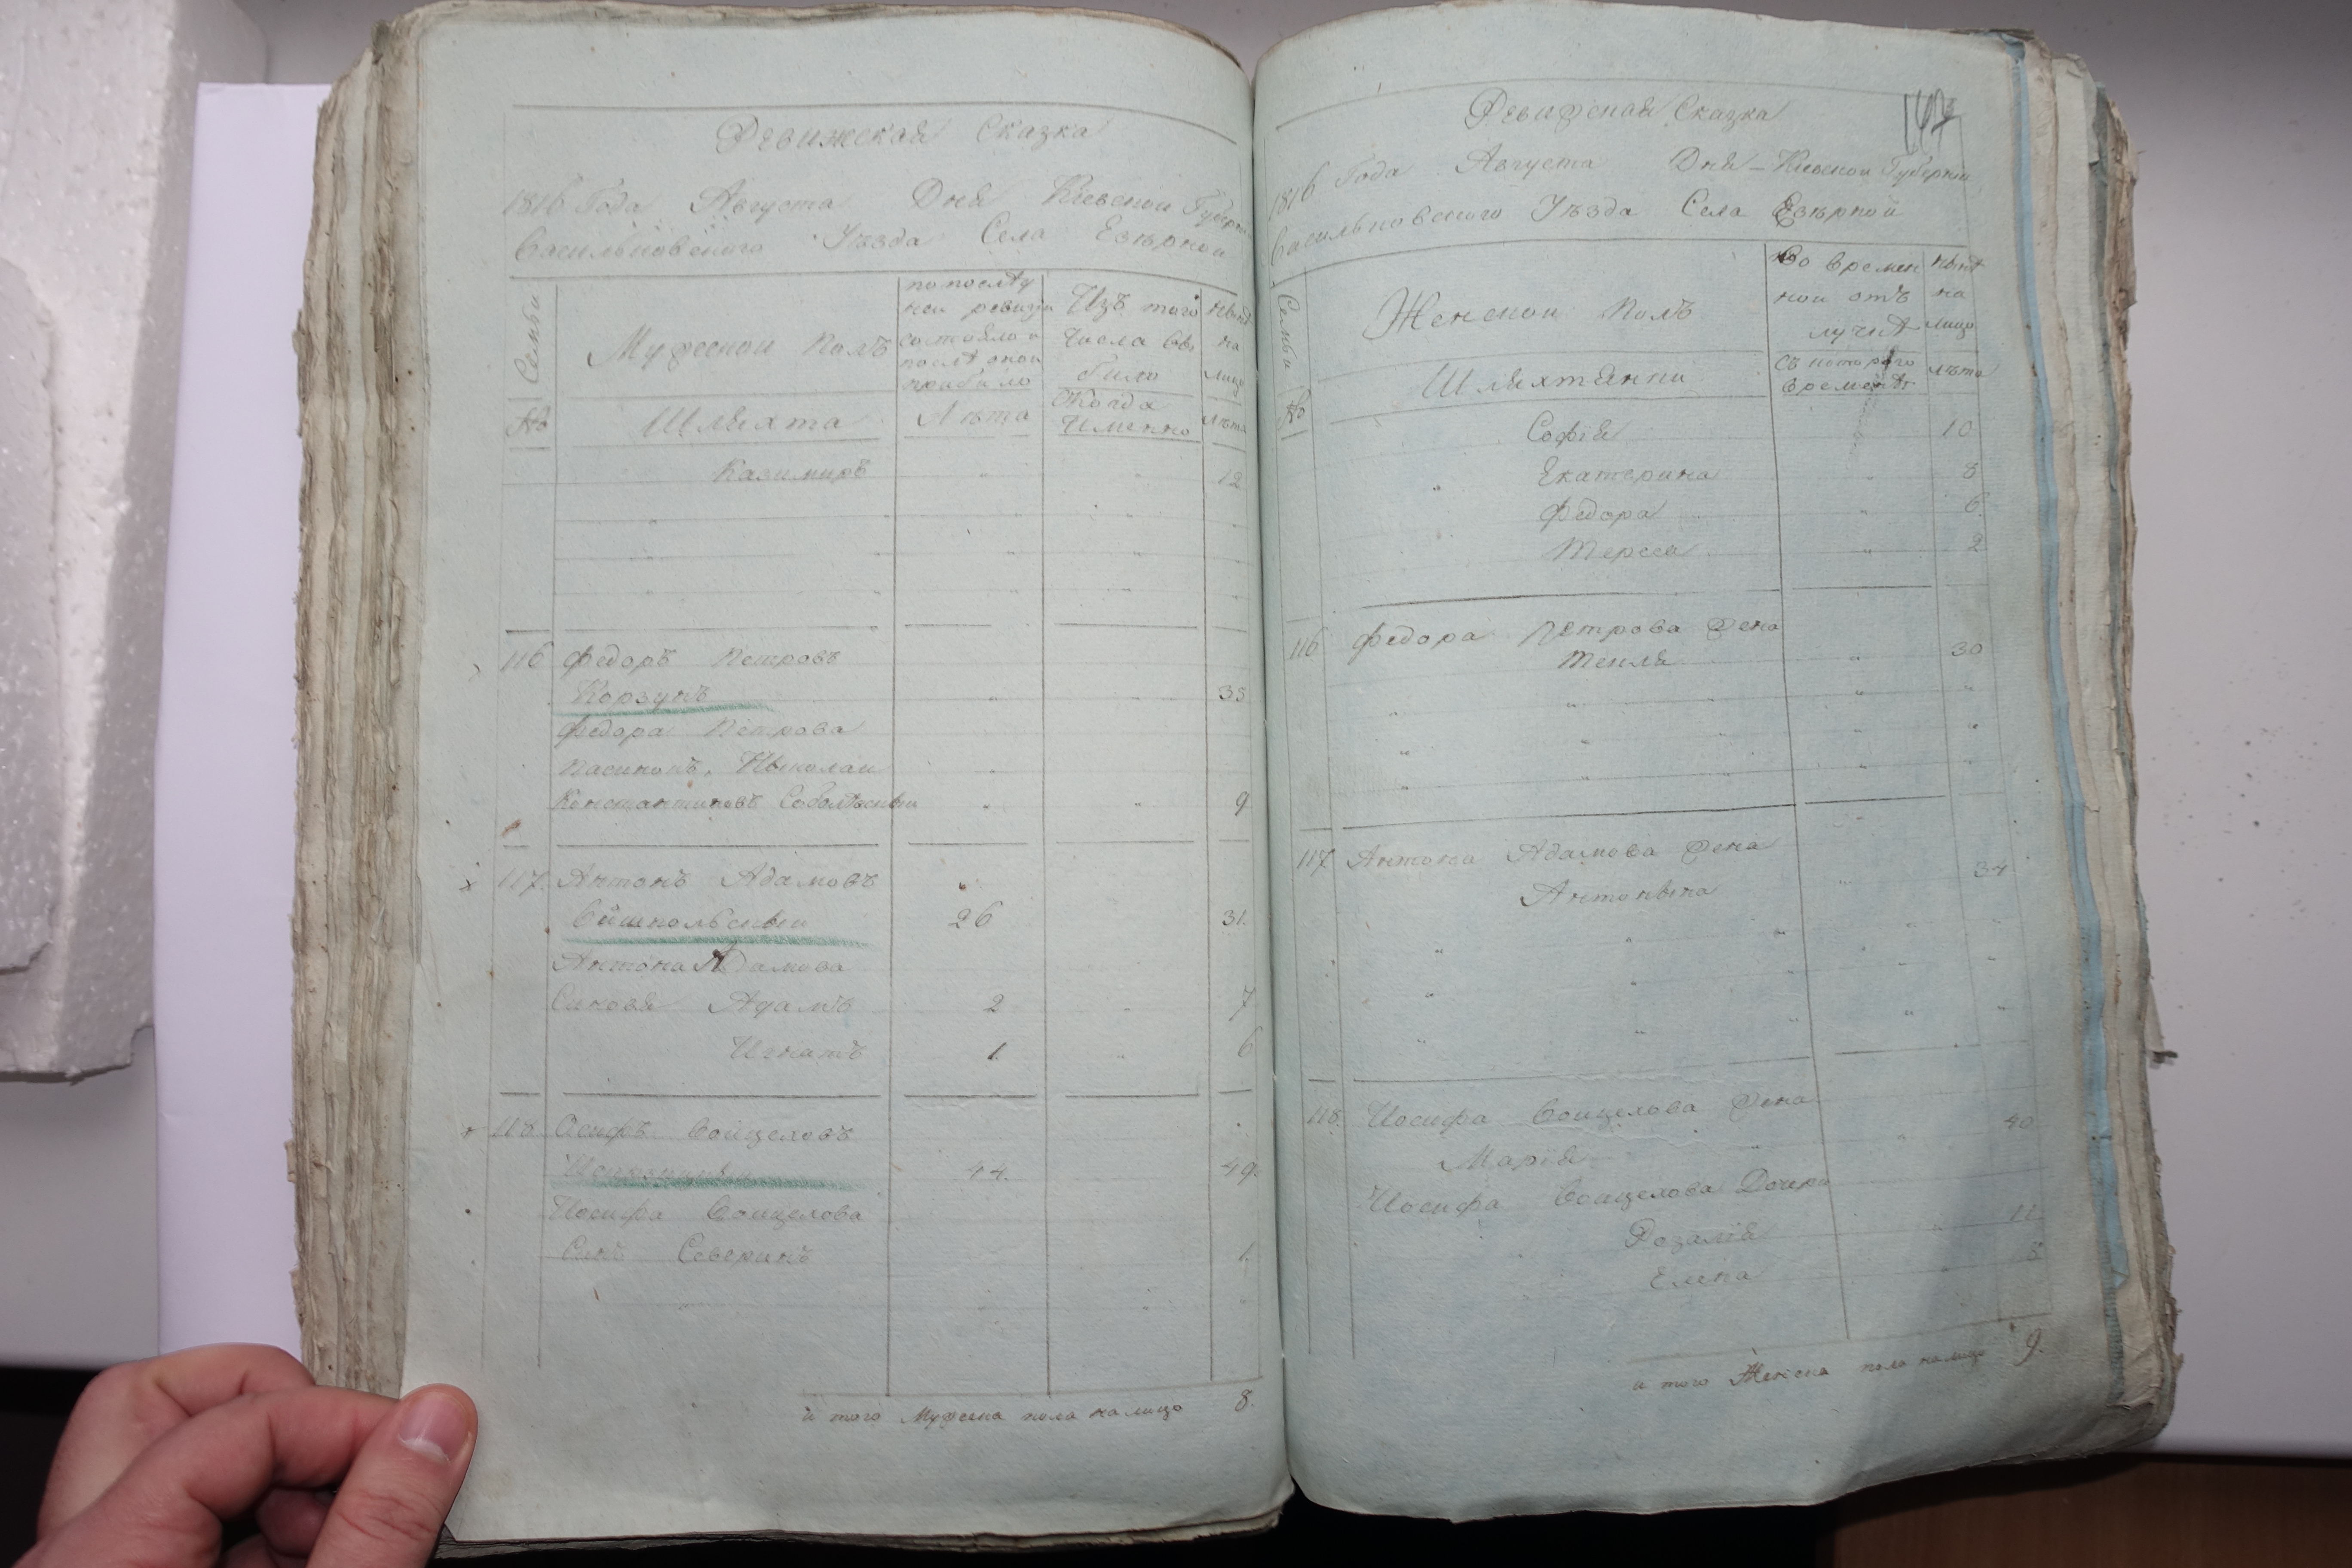 Ревижская Сказка
1816 Года Августа Дня Киевской Губернии
Васильковского Уѣзда Села Езѣрной
Семьи
Мужеской Полъ
по послѣд
ней ревизіи
состояло и
послѣ оной
прибыло
Изъ того
числа вы
было
нынѣ
на
лицо
№
Шляхта
Лѣта
Когда
Именно
Лѣта
Казимиръ 12
116 Федоръ Петровъ
Корзунъ 35
Федора Петрова
Пасинокъ, Николай
Константиновъ 9
117. Антонъ Адамовъ
26 31.
Антона Адамова
Синовя Адамъ 2 7
Игнатъ 1. 6
118. Осифъ Войцеховъ
44. 49.
Иосифа Войцехова
Синъ Северинъ 1.
и того Мужеска пола на лицо 8.
Ревижская Сказка
1816 Года Августа Дня – Киевской Губерніи
Васильковского Уѣзда Села Езѣрной
Семьи
Женской Полъ
Во времен
ной отъ
лучкѣ
нынѣ
на
лицо
№
Шляхтянки
Съ которого
времени
лѣта
Софія 10
Екатерина 8
Федора 6.
Тереса 2
116 Федора Петрова Жена
Текля 30
117. Антона Адамова Жена
Антонина 34
118. Иосифа Войцехова Жена
Марія 40
Иосифа Войцехова Дочери
Розалія 11
Елена 8
и того Женска пола на лицо 9.